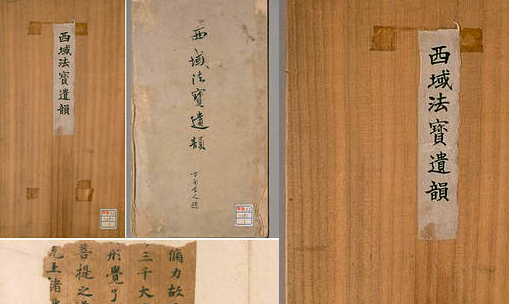 西域法寶遺韻
西域法寶遺韻
西域法寶遺韻
力故
三千大
覺
菩提之
王諸